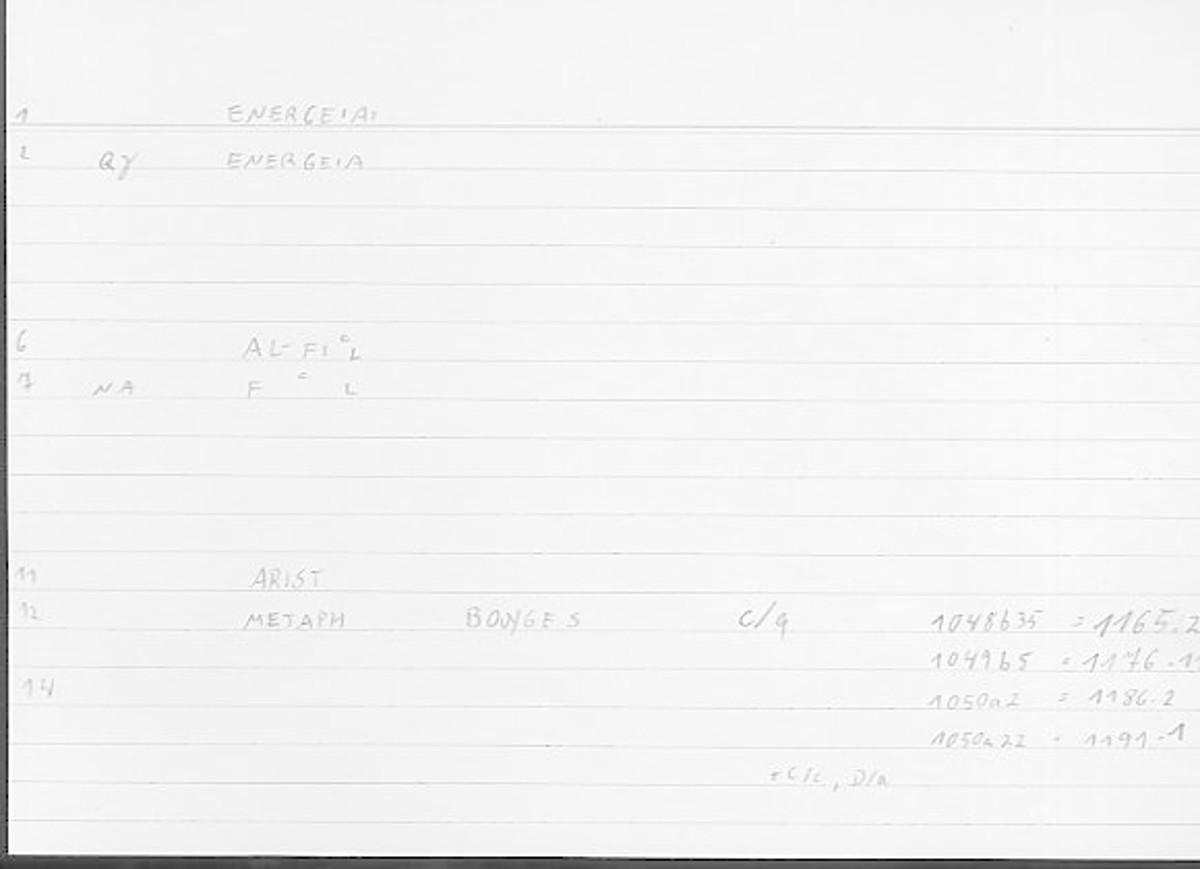 1 ENERGEIAI
2 Qγ ENERGEIA
6 AL-FIᶜL
7 NA F ᶜ L
11 ARIST
12 METAPH BOUYGES C/q 1048b35 = 1165.2
1049b5 = 1176.11
14 1050a2 = 1186.2
1050a22 = 1191.1
+C/c, D/a